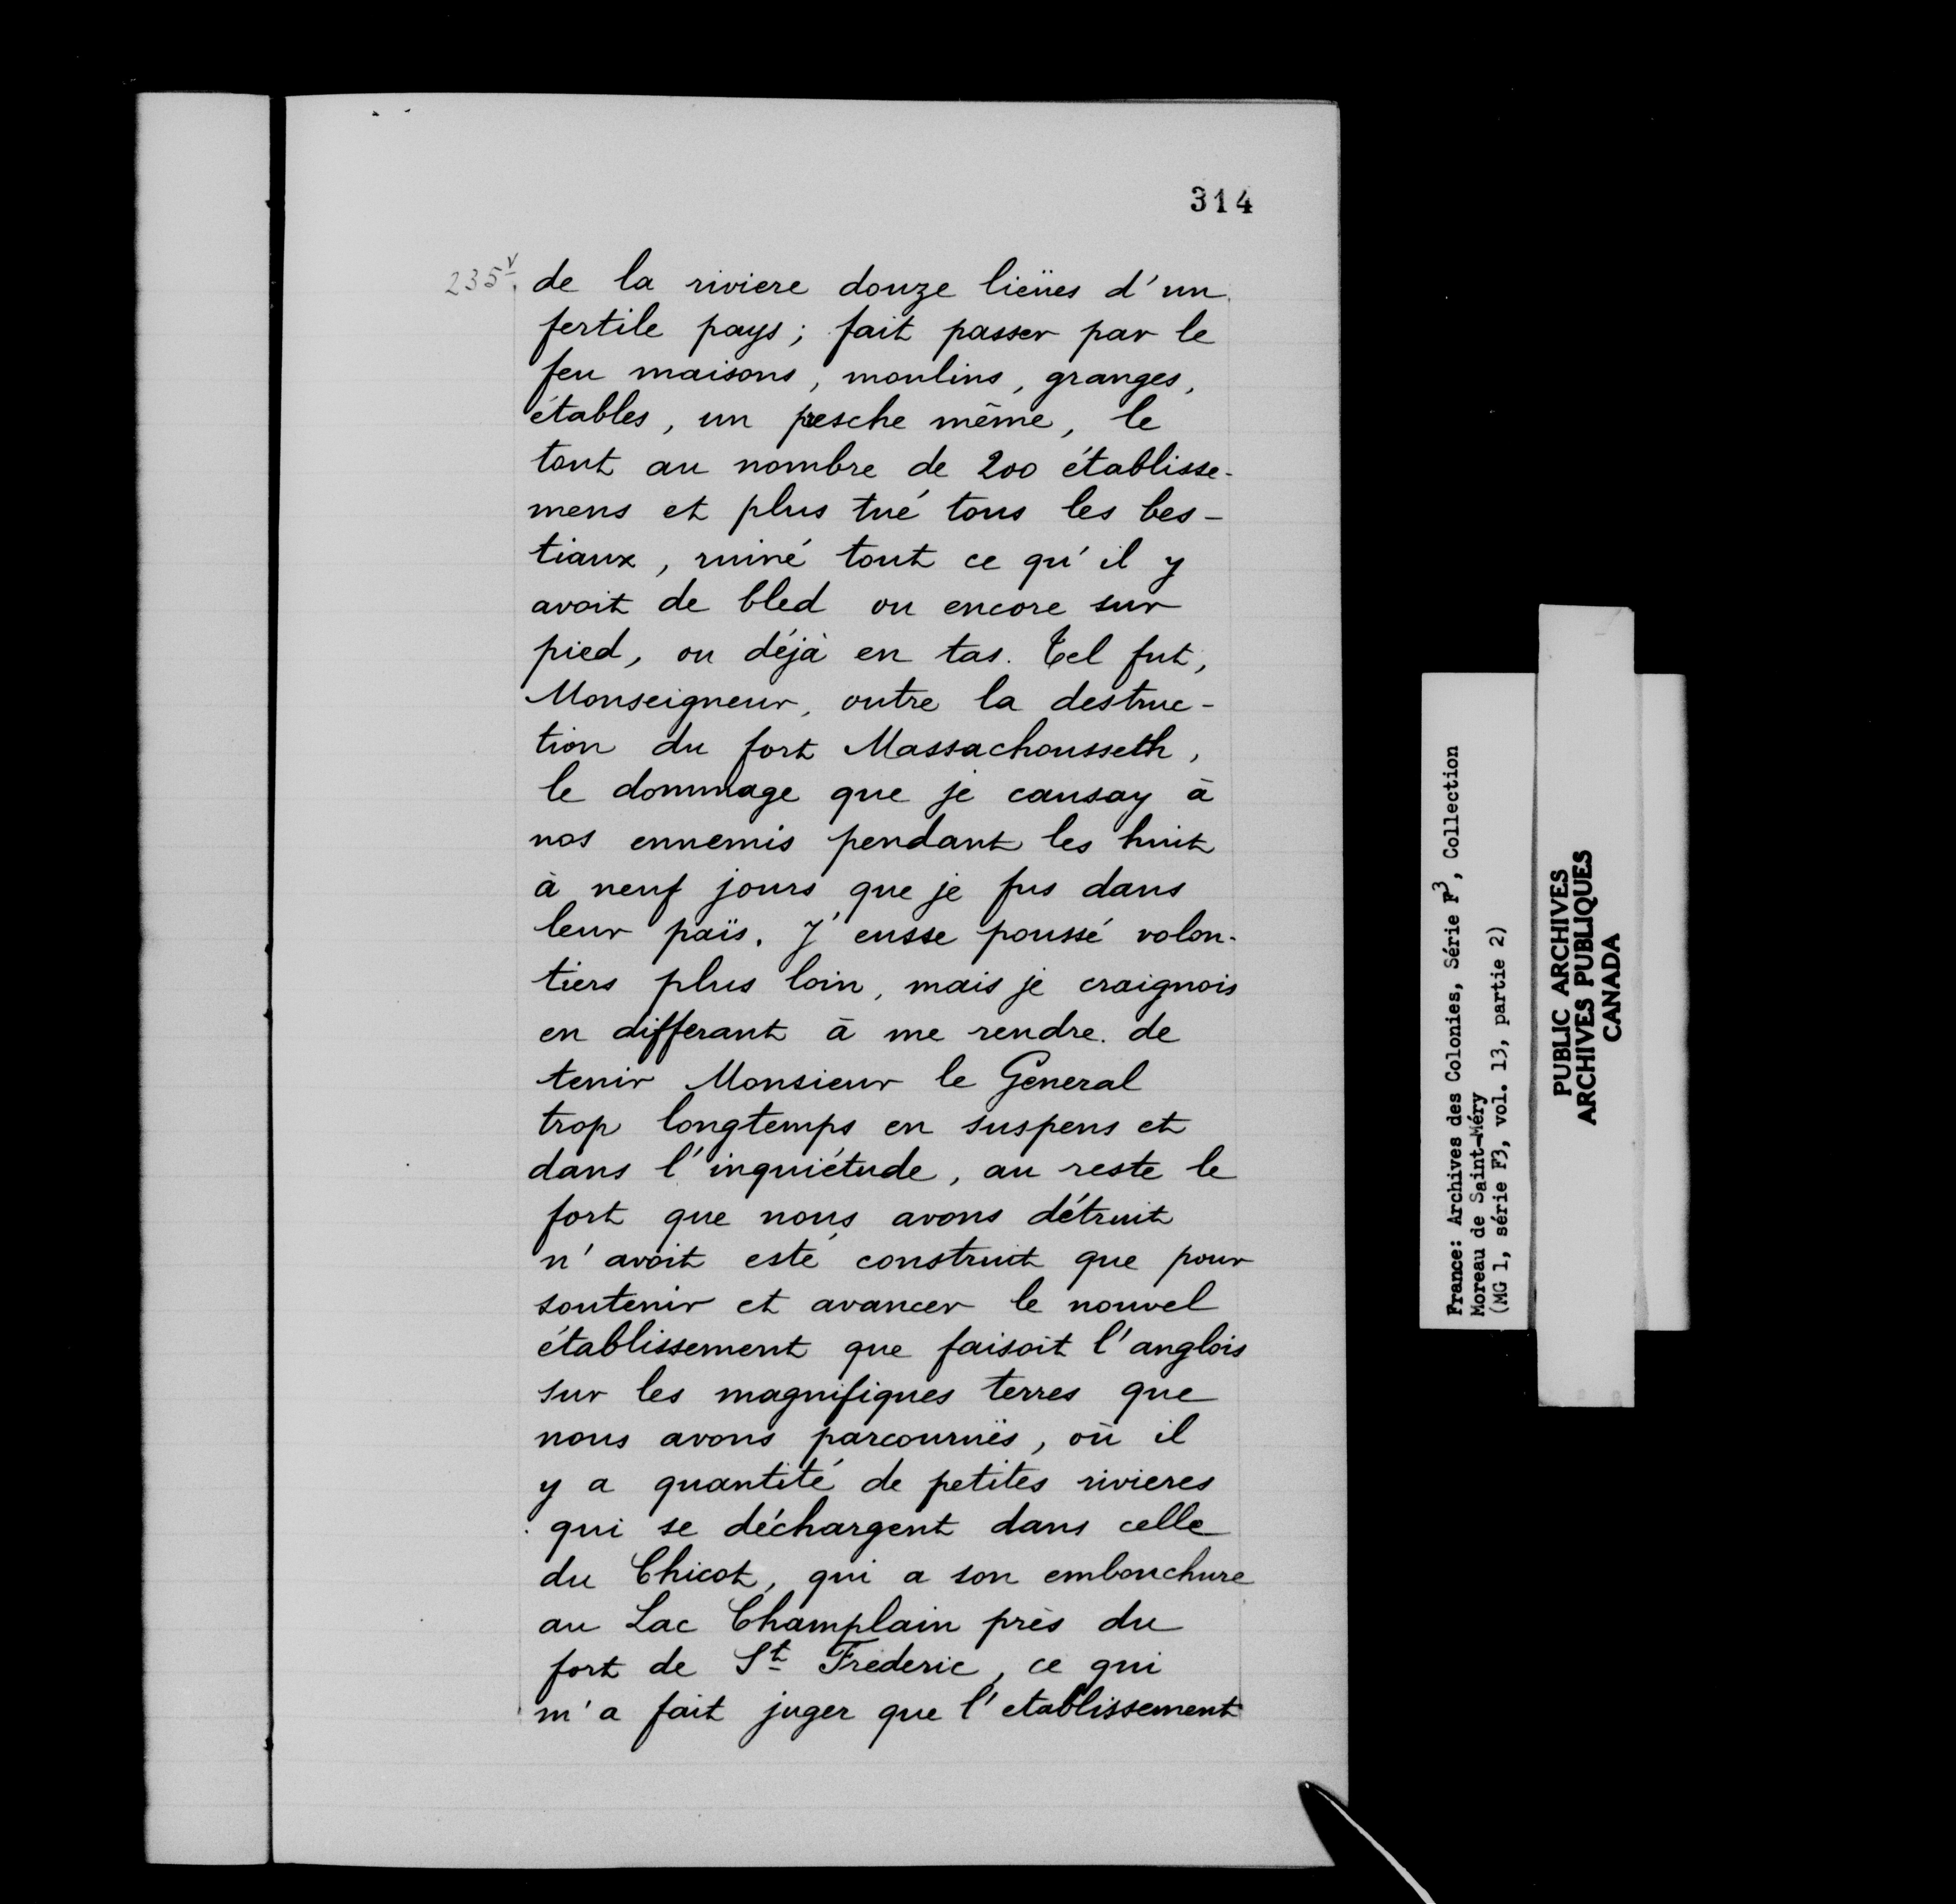 314
235v.
de la riviere douze lieües d'un
fertile pays; fait passer par le
feu maisons, moulins, granges,
étables, un presche même, le
tout au nombre de 200 établisse-
mens et plus tué tous les bes-
tiaux, ruiné tout ce qu'il y
avoit de bled ou encore sur
pied, ou déjà en tas. Tel fut,
Monseigneur, outre la destruc-
tion du fort Massachousseth,
le dommage que je causay à
nos ennemis pendant les huit
à neuf jours que je fus dans
leur païs. J'eusse poussé volon-
tiers plus loin, mais je craignois
en differant à me rendre. de
tenir Monsieur le General
trop longtemps en suspens et
dans l'inquiétude, au reste le
fort que nous avons détruit
n'avoit esté construit que pour
soutenir et avancer le nouvel
établissement que faisoit l'anglois
sur les magnifiques terres que
nous avons parcournës, où il
y a quantité de petites rivieres
qui se déchargent dans celle
du Chicot, qui a son embouchure
au Lac Champlain près du
fort de St Frederic, ce qui
m'a fait juger que l'etablissement
France: Archives des Colonies, Série F3, Collection
Moreau de Saint-Méry
(MG 1, série F3, vol. 13, partie 2)
PUBLIC ARCHIVES
ARCHIVES PUBLIQUES
CANADA